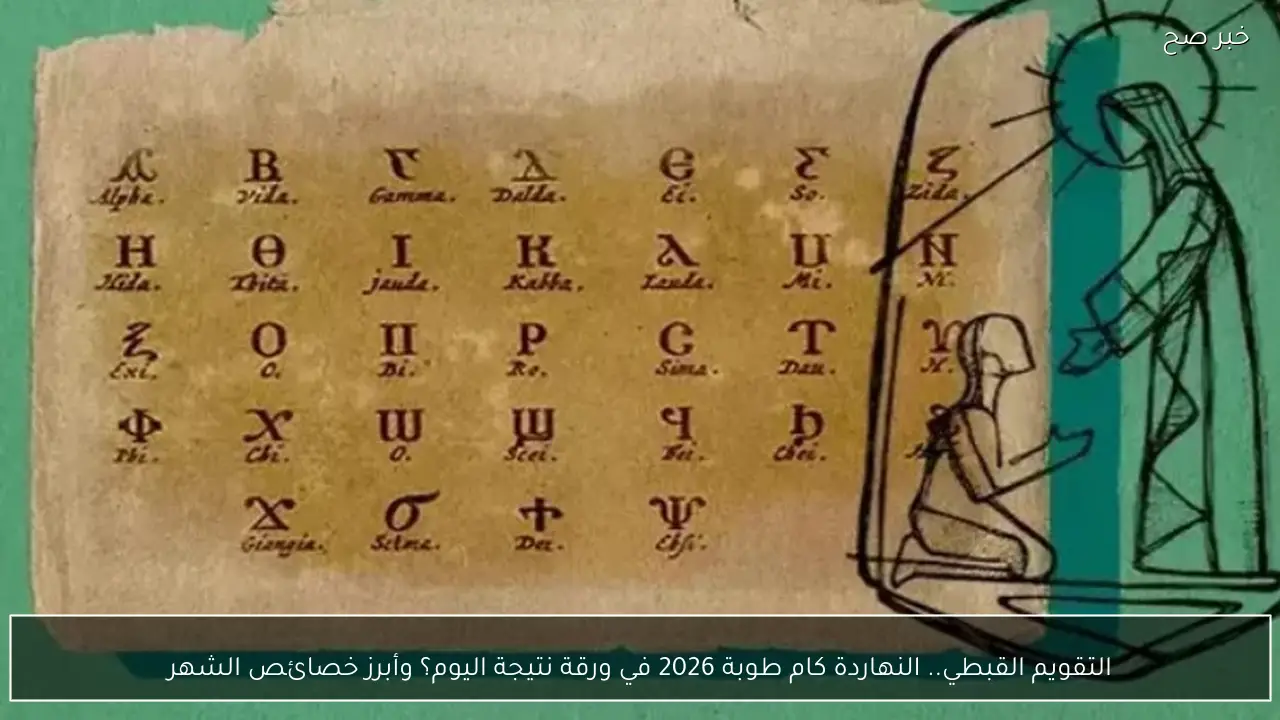 خبر صح
Ⲁ Ⲃ Ⲅ Ⲇ Ⲉ Ⲋ Ⲍ
Alpha. Vida. Gamma. Dalda. Ei. So. Zida.
Ⲏ Ⲑ Ⲓ Ⲕ Ⲗ Ⲙ Ⲛ
Hida. Thita. jauda. Kabba. Lauda. Mi. Ni.
Ⲝ Ⲟ Ⲡ Ⲣ Ⲥ Ⲧ Ⲩ
Exi. O. Bi. Ro. Sima. Dau. H.
Ⲫ Ⲭ Ⲱ Ϣ Ϥ Ϧ
Phi. Chi. O. Scei. Fei. Chei.
Ϫ Ϭ Ϯ Ⲯ
Giangia. Scima. Dei. Ebsi.
التقويم القبطي.. النهاردة كام طوبة 2026 في ورقة نتيجة اليوم؟ وأبرز خصائص الشهر